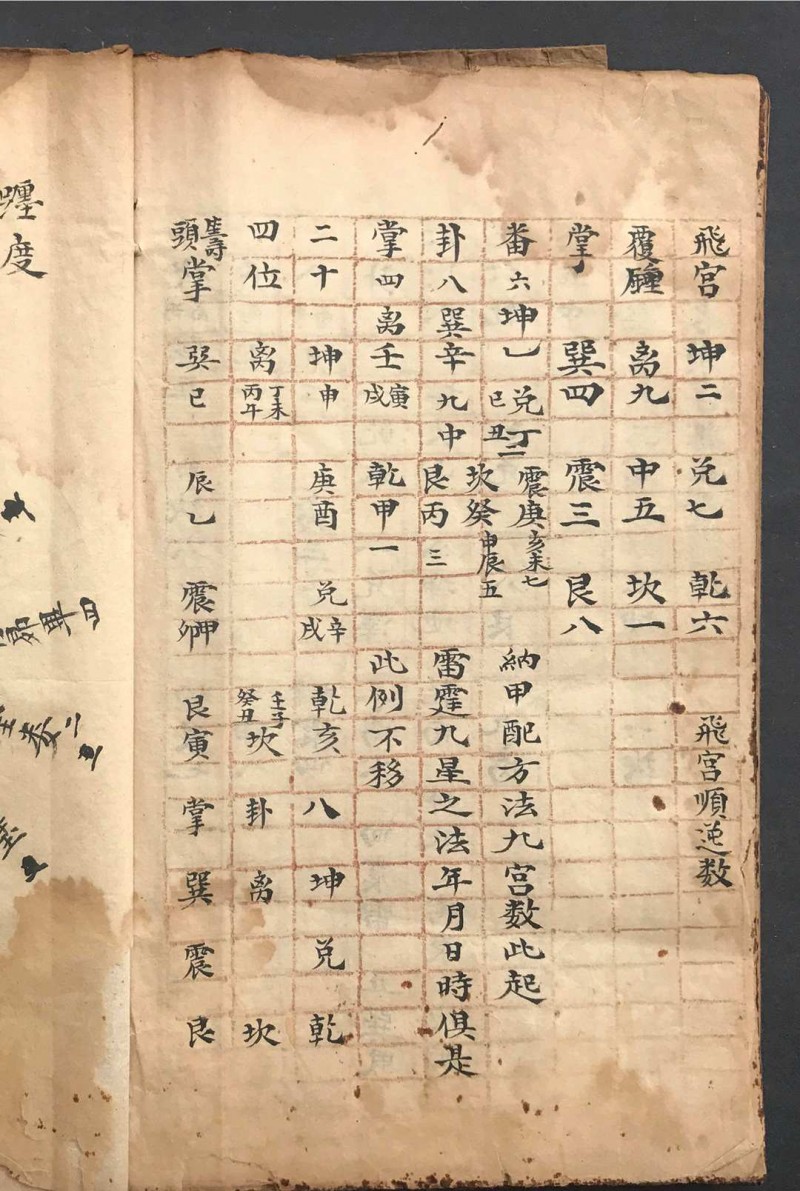 飛宮 坤二 兌七 乾六 飛宮順逆数
覆 离九 中五 坎一
掌 巽四 震三 艮八
番 六 坤乚 兌丁二 巳丑 震庚亥未七 坎癸申辰五 納甲配方法九宮数此起
卦 八 巽辛 九中 艮丙 三 雷霆九星之法年月日時俱是
掌 四 离壬寅戌 乾甲一 此例不移
二十 坤申 庚酉 兌辛戌 乾亥 八 坤 兌 乾
四位 离丁未丙午 壬子癸丑坎 卦 离 坎
頭掌 巽巳 辰乚 震甲卯 艮寅 掌 巽 震 艮
躔度